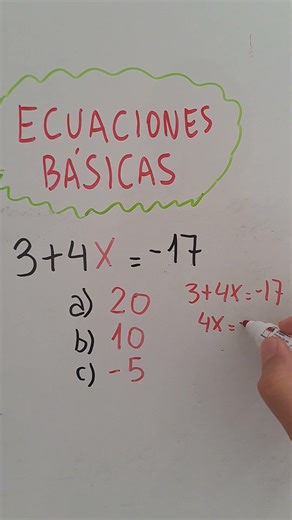 ECUACIONES
BÁSICAS
3+4X=-17
a) 20
b) 10
c) -5
3+4X=-17
4X=